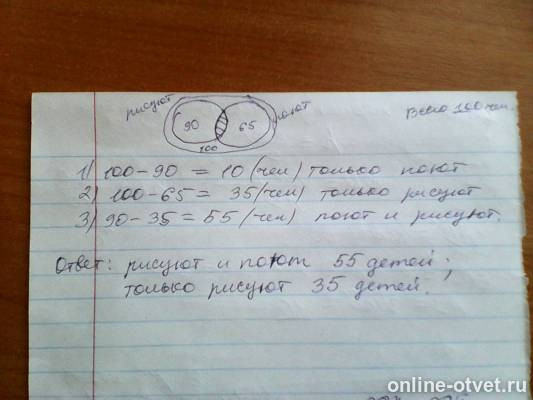 рисуют поют Всего 100 чел.
90 65
100
1) 100-90 = 10 (чел) только поют
2) 100-65 = 35 (чел) только рисуют
3) 90-35 = 55 (чел) поют и рисуют.
Ответ: рисуют и поют 55 детей;
только рисуют 35 детей.
online-otvet.ru